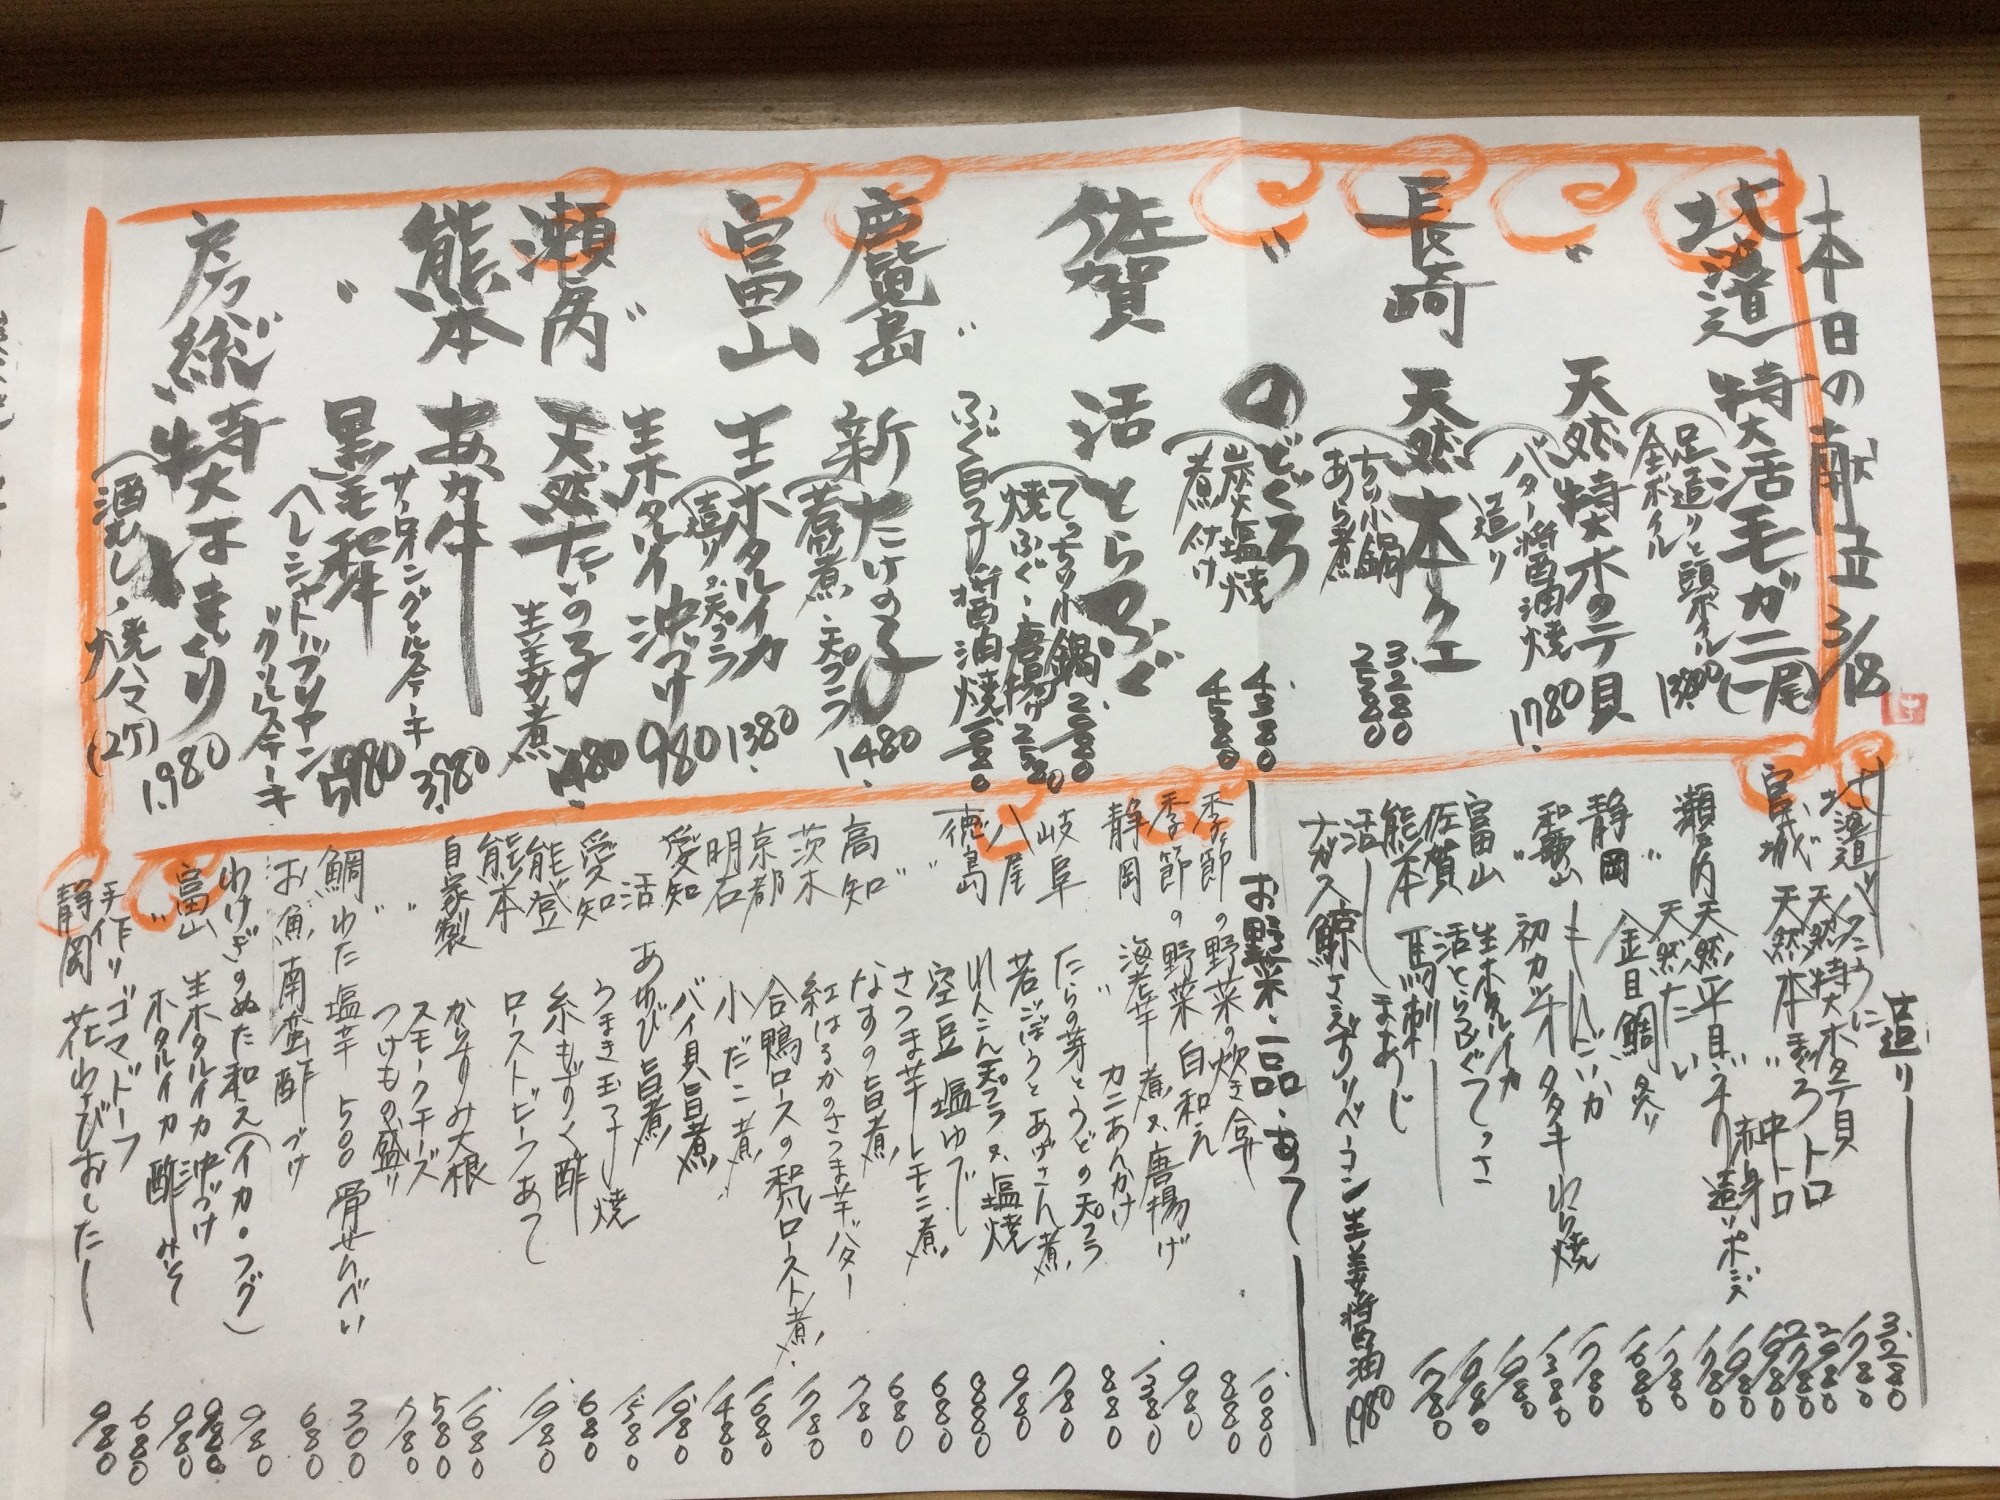 本日の献立 3/18
北海道 特大活毛ガニ(一尾)
(足造りと頭ボイル
全ボイル 13,800
〃 天然特大ホタテ貝
(バター醤油焼 1,780
造り
長崎 天然本クエ
(ちり小鍋 3,280
あら煮 2,580
〃 のどぐろ
(炭火塩焼 4,380
煮付け 4,580
佐賀 活とらふぐ
(てっちり小鍋 2,080
焼ふぐ・唐揚げ 2,580
〃 ふぐ白子 醤油焼
鹿児島 新たけのこ 1,480
(若煮・天プラ
富山 生ホタルイカ 1,380
(造り又天プラ
〃 生ホタルイカ沖づけ 980
瀬戸内 天然たいの子 1,480
生姜煮
熊本 あか牛 3,980
サーロイングリルステーキ
〃 黒毛和牛 5,980
ヘレシャトーブリアン
グリルステーキ
房総 特大はまぐり 1,980
(酒むし・焼ハマ(2ケ)
造り
北海道 バフンうに 3,280
〃 天然特大ホタテ貝 1,780
宮城 天然本まぐろ トロ 2,980
〃 中トロ 2,780
赤身 1,980
瀬戸内 天然平目 うす造りポン酢 1,980
〃 天然たい 1,780
静岡 金目鯛 炙り 1,680
〃 もんごいか
和歌山 初カツオ タタキ わら焼 1,380
富山 生ホタルイカ 1,980
佐賀 活とらふぐてっさ 1,980
熊本 馬刺し 1,780
活 まあじ
ナガス鯨 さえずり ベーコン 生姜醤油 1,980
お野菜・一品・あて
季節の野菜の炊き合せ 1,080
季節の野菜 白和え 880
静岡 海老芋 煮又唐揚げ 980
〃 カニあんかけ 1,380
岐阜 たらの芽とうどの天プラ 880
八尾 若ごぼうとあげさん煮 780
徳島 れんこん天プラ又塩焼 980
〃 空豆 塩ゆで 880
さつま芋レモン煮 680
高知 なすの旨煮 680
茨木 紅はるかのさつま芋バター 780
京都 合鴨ロースの和風ロースト煮 1,780
明石 小だこ煮 1,680
愛知 バイ貝旨煮 1,480
活 あわび旨煮 1,980
愛知 うまき玉子焼 1,580
能登 糸もずく酢 680
熊本 ローストビーフあて 1,980
自家製 からすみ大根 1,680
〃 スモークチーズ 580
つけもの盛り 780
鯛わた塩辛 500 骨せんべい 300
お魚南蛮酢づけ 680
わけぎのぬた和え(イカ・フグ) 980
富山 生ホタルイカ沖づけ 980
〃 ホタルイカ酢みそ 980
手作り ゴマドーフ 680
静岡 花わさびおしたし 980